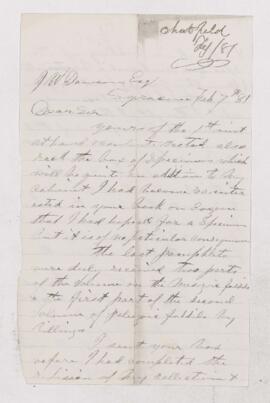 Chatfield
Feb/81
J W Dawson Esq
Syracuse Feb 7th 81
Dear Sir
Yours of the 1st inst
at hand contents noted also
rec'd the box of Specimens which
will be quite an addition to my
cabinet I had become so inter
ested in your book on Eozoon
that I had hoped for a Specimen
but it is of no particular consequence
The last pamphlets
were duly received two parts
of the volume on the Mesozoic fossils
& the first part of the second
volume of paleozoic fossils by
Billings
I sent your box
before I had completed the
revision of my collection &